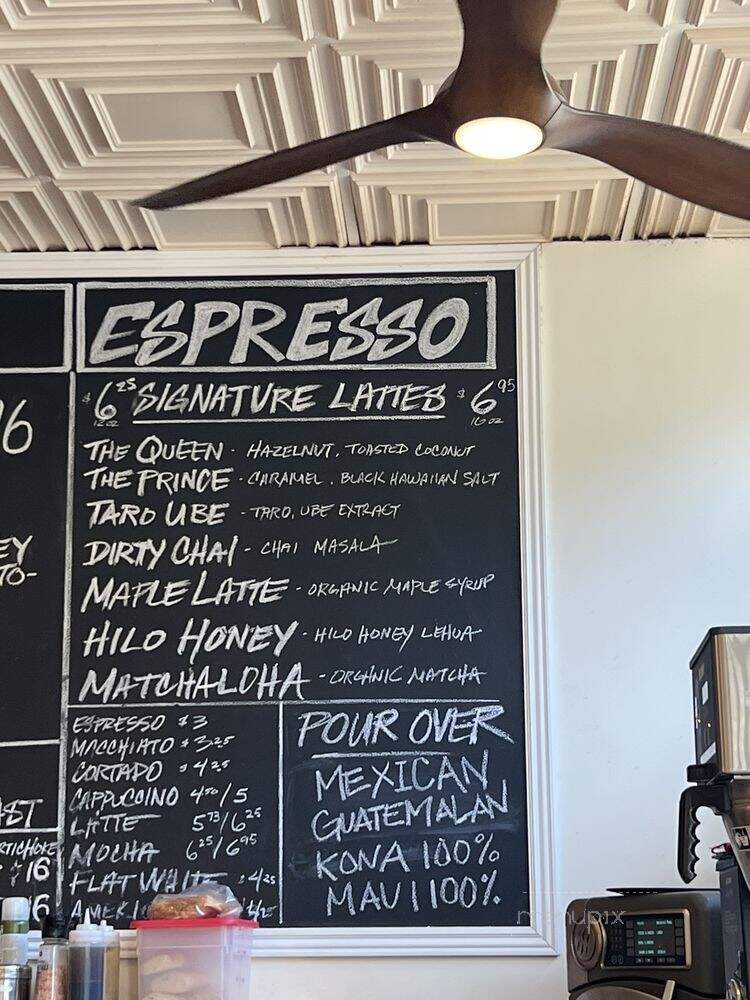 ESPRESSO
$6 25 12 oz SIGNATURE LATTES $6 95 16 oz
THE QUEEN - HAZELNUT, TOASTED COCONUT
THE PRINCE - CARAMEL, BLACK HAWAIIAN SALT
TARO UBE - TARO, UBE EXTRACT
DIRTY CHAI - CHAI MASALA
MAPLE LATTE - ORGANIC MAPLE SYRUP
HILO HONEY - HILO HONEY LEHUA
MATCHALOHA - ORGANIC MATCHA
ESPRESSO $3
MACCHIATO $3.25
CORTADO $4.25
CAPPUCCINO /5
LATTE 5 73/6 25
MOCHA 6 25/6 95
FLAT WHITE $4.25
POUR OVER
MEXICAN
GUATEMALAN
KONA 100%
MAUI 100%
16
EY
TO-
AST
RTICHOKE
$16
menupix